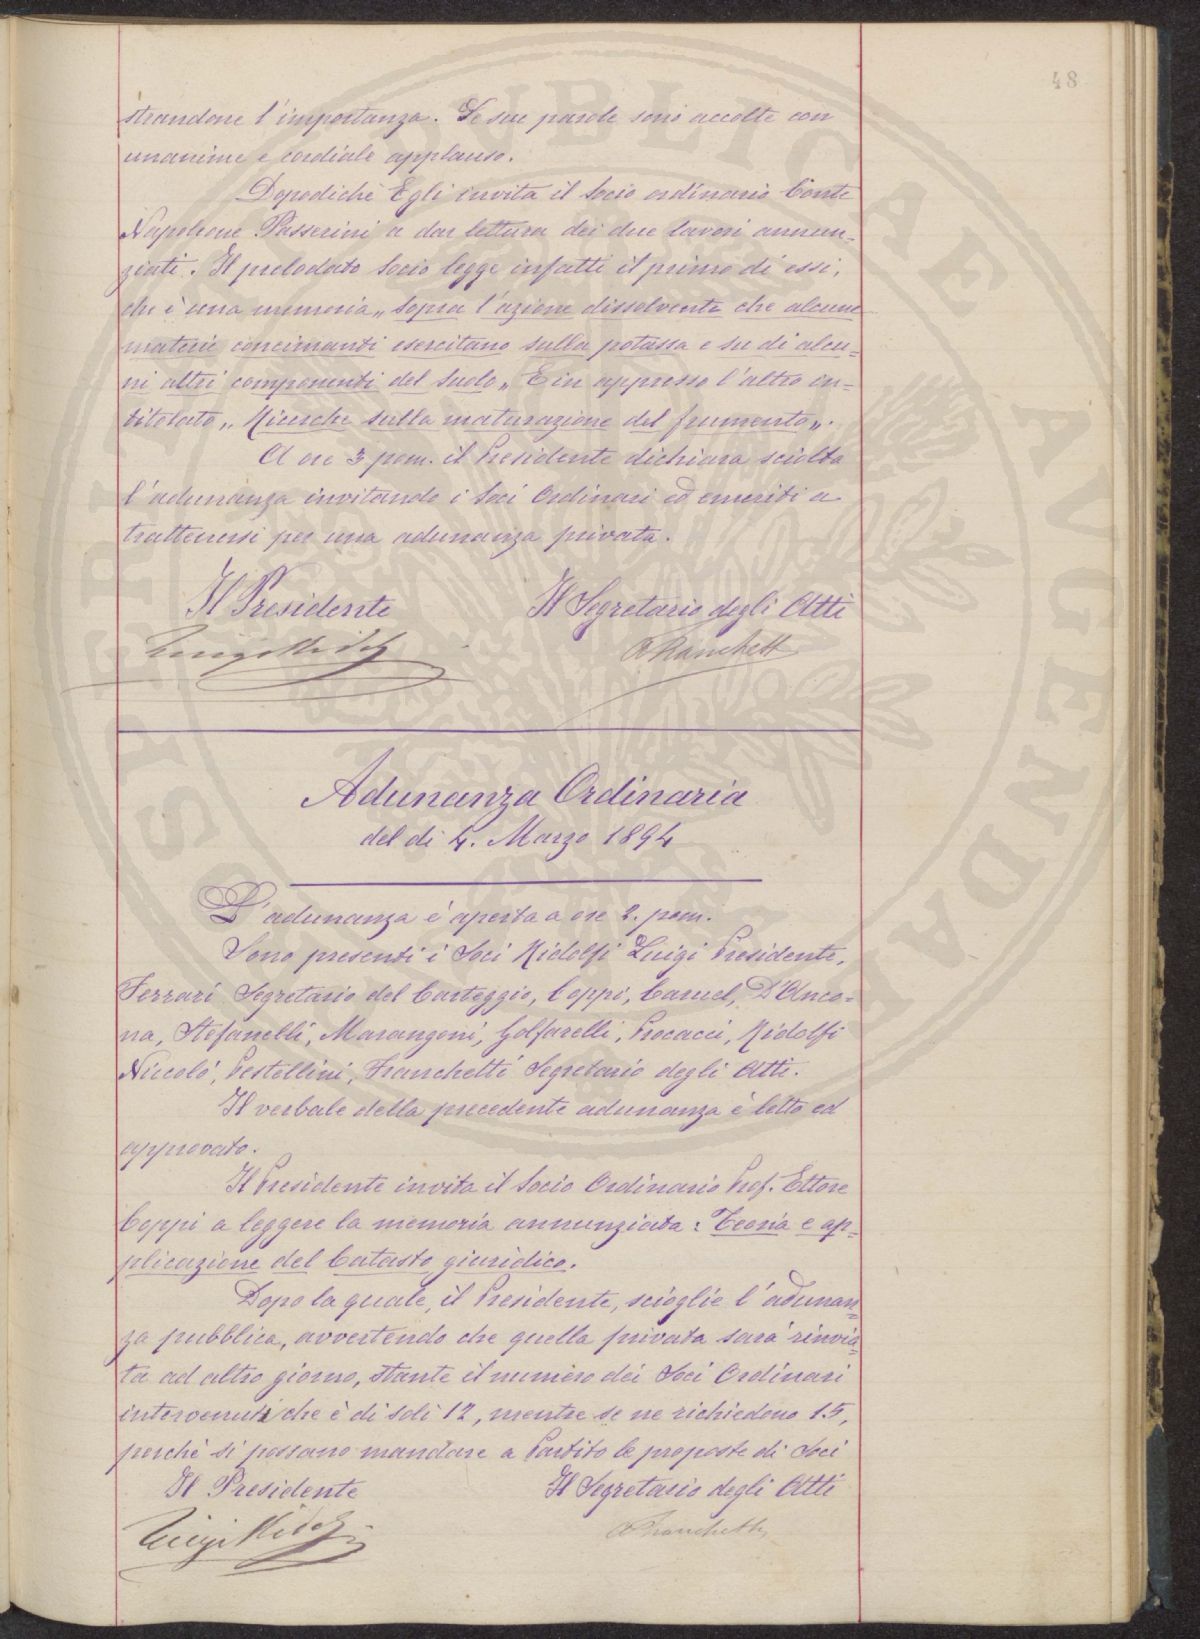 48
strandone l'importanza. Le sue parole sono accolte con
unanime e cordiale applauso.
Dopodichè Egli invita il Socio ordinario Conte
Napoleone Passerini a dar lettura dei due lavori annun-
ziati. Il prelodato Socio legge infatti il primo di essi,
che è una memoria „ Sopra l'azione dissolvente che alcune
materie concimanti esercitano sulla potassa e su di alcu-
ni altri componenti del suolo „ E in appresso l'altro in-
titolato „ Ricerche sulla maturazione del frumento „.
A ore 3 pom. il Presidente dichiara sciolta
l'adunanza invitando i Soci Ordinari ed emeriti a
trattenersi per una adunanza privata.
Il Presidente Il Segretario degli Atti
Luigi Ridolfi A Franchetti
Adunanza Ordinaria
del dì 4. Marzo 1894
L'adunanza è aperta a ore 2. pom.
Sono presenti i Soci Ridolfi Luigi Presidente,
Ferrari Segretario del Carteggio, Coppi, Caruel, D'Anco=
na, Stefanelli, Marangoni, Golfarelli, Procacci, Ridolfi
Niccolò, Pestellini, Franchetti Segretario degli Atti.
Il verbale della precedente adunanza è letto ed
approvato.
Il Presidente invita il Socio Ordinario Prof. Ettore
Coppi a leggere la memoria annunziata: Teoria e ap-
plicazione del Catasto giuridico.
Dopo la quale, il Presidente, scioglie l'adunan=
za pubblica, avvertendo che quella privata sarà rinvia=
ta ad altro giorno, stante il numero dei Soci Ordinari
intervenuti che è di soli 12, mentre se ne richiedono 15,
perchè si possano mandare a Partito le proposte di Soci
Il Presidente Il Segretario degli Atti
Luigi Ridolfi A Franchetti
OSSTERILI PUBLICAE AUGENDAE